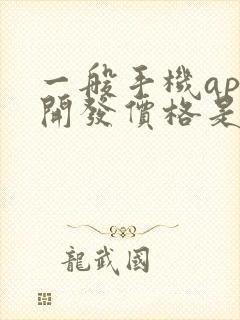 一般手機ap
開發價格是
龍武國